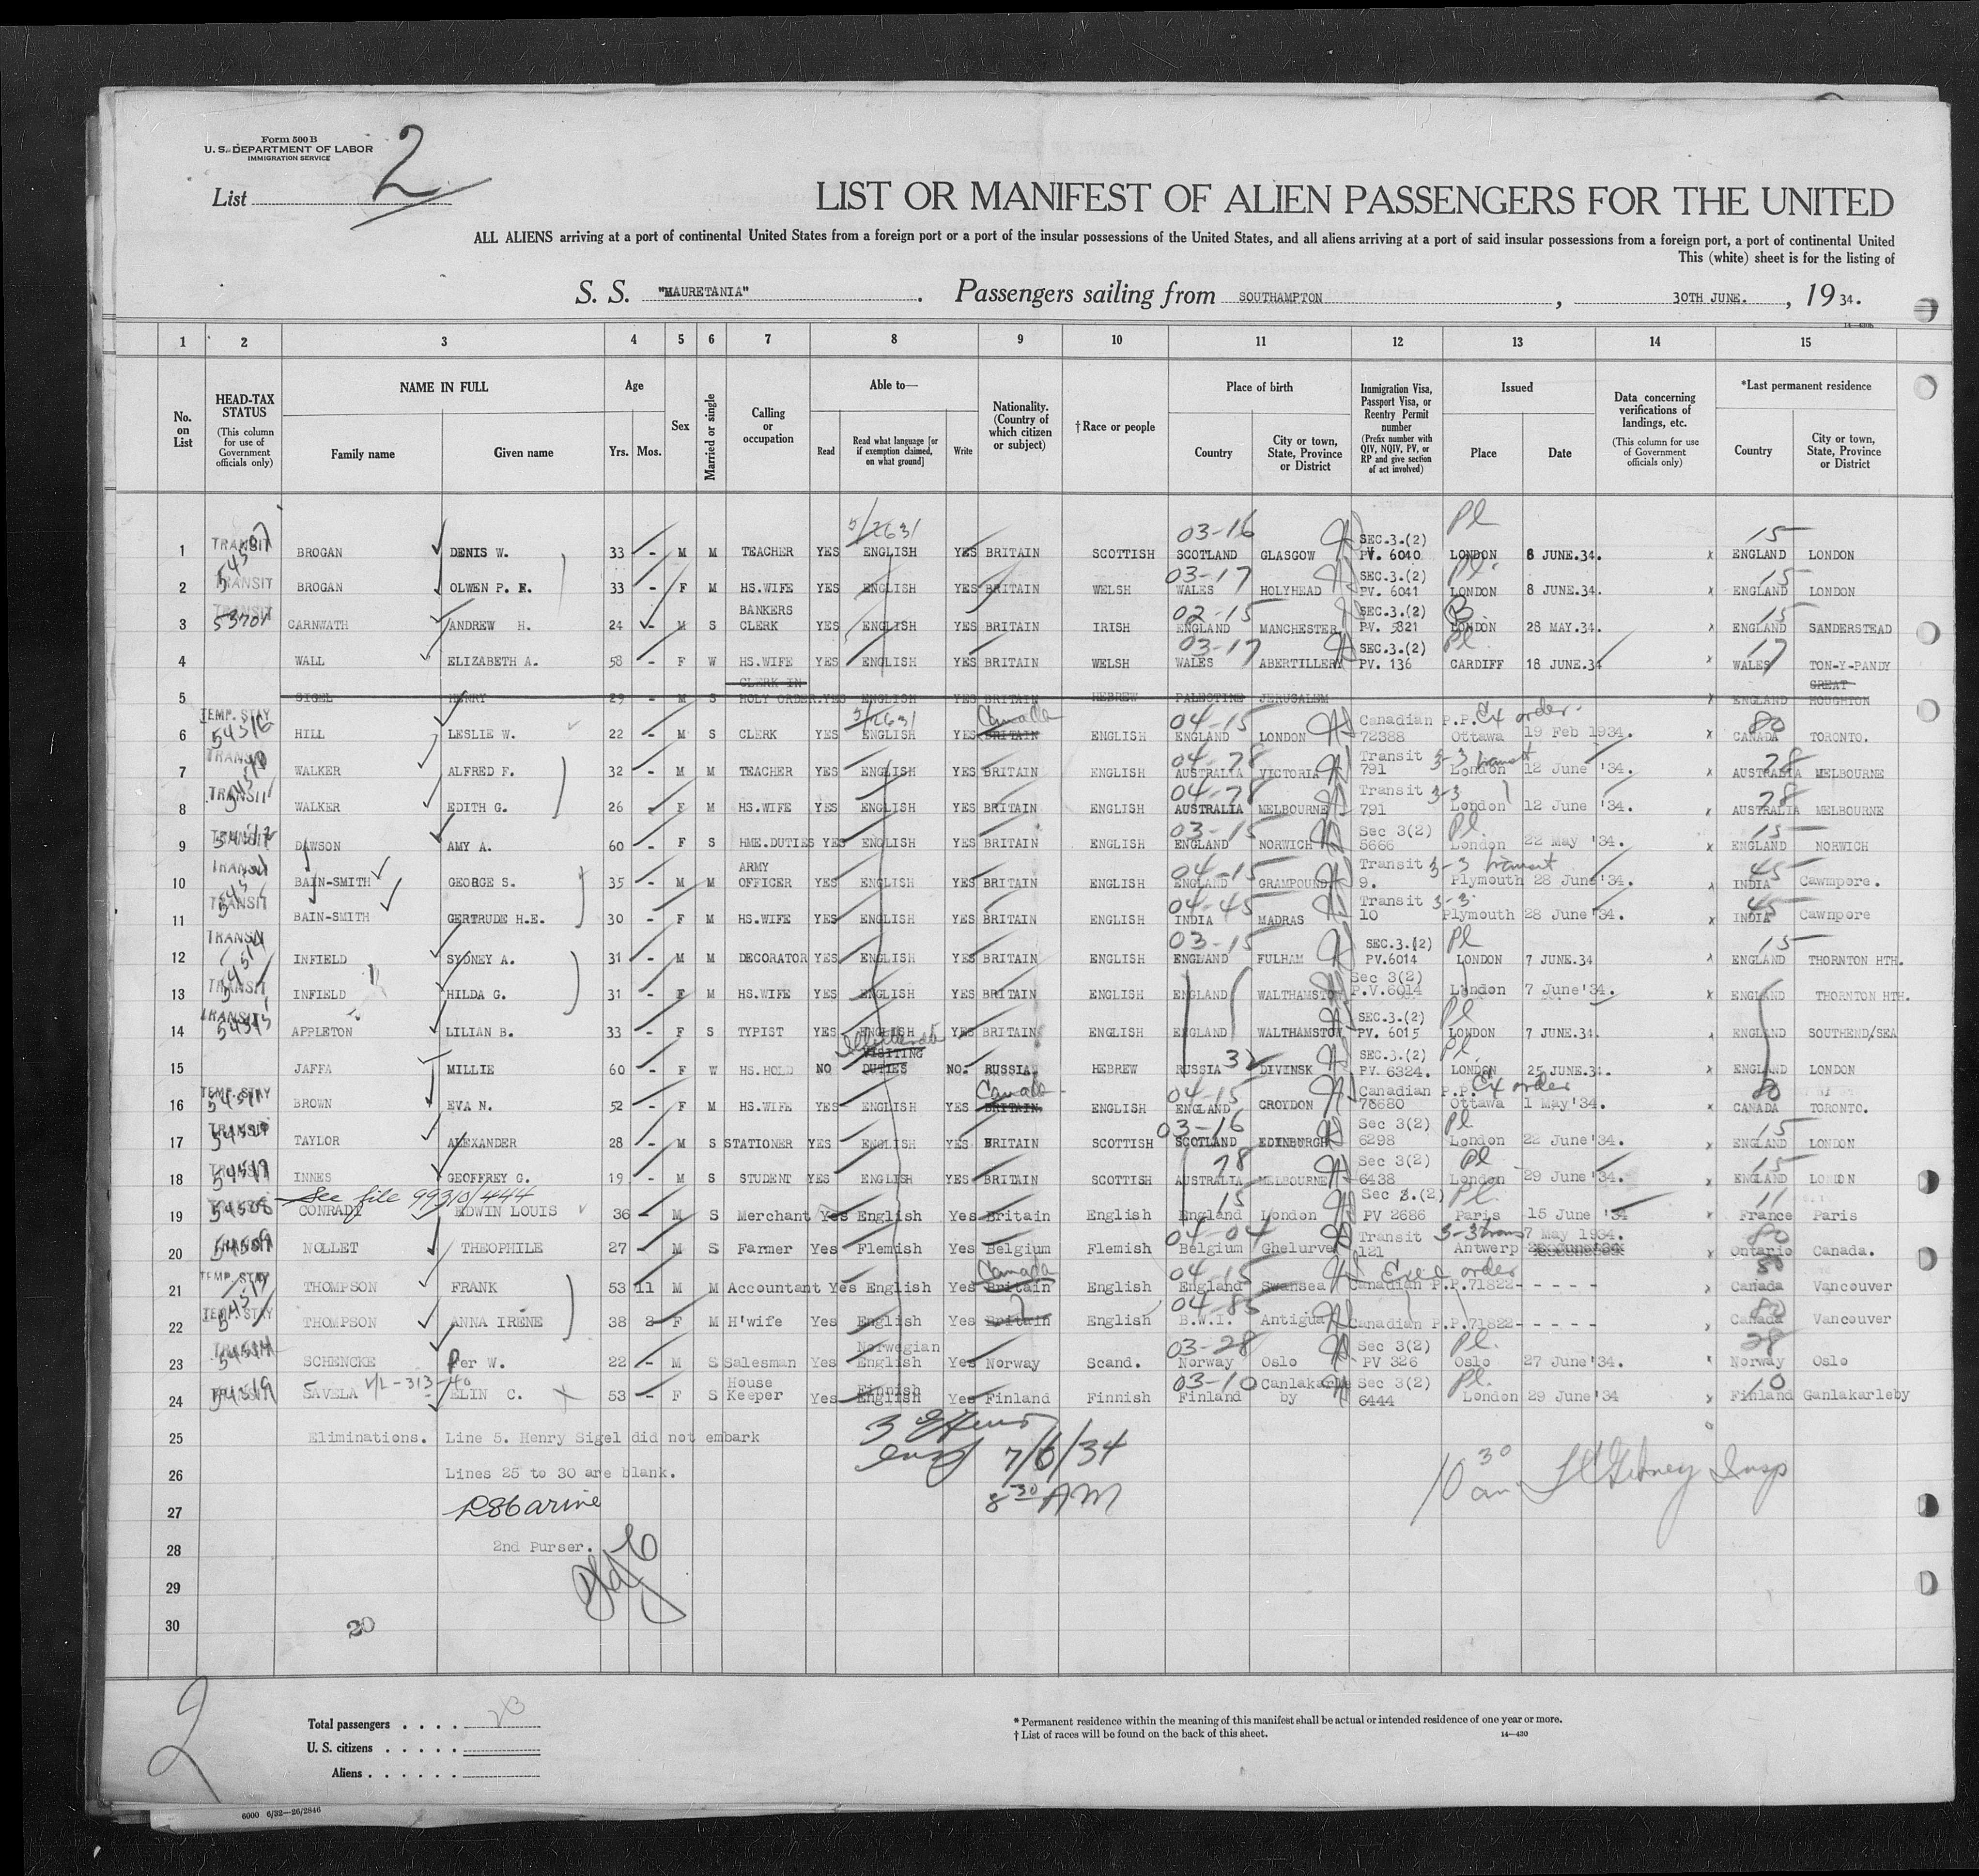 Form 500 B
U. S. DEPARTMENT OF LABOR
IMMIGRATION SERVICE
List 2
LIST OR MANIFEST OF ALIEN PASSENGERS FOR THE UNITED
ALL ALIENS arriving at a port of continental United States from a foreign port or a port of the insular possessions of the United States, and all aliens arriving at a port of said insular possessions from a foreign port, a port of continental United
This (white) sheet is for the listing of
S. S. "MAURETANIA". Passengers sailing from SOUTHAMPTON, 30TH JUNE., 1934.
1 2 3 4 5 6 7 8 9 10 11 12 13 14 15
No. on List
HEAD-TAX STATUS (This column for use of Government officials only)
NAME IN FULL
Family name Given name
Age
Yrs. Mos.
Sex
Married or single
Calling or occupation
Able to—
Read Read what language [or if exemption claimed, on what ground] Write
Nationality. (Country of which citizen or subject)
† Race or people
Place of birth
Country City or town, State, Province or District
Immigration Visa, Passport Visa, or Reentry Permit number (Prefix number with QIV, NQIV, PV, or RP and give section of act involved)
Issued
Place Date
Data concerning verifications of landings, etc. (This column for use of Government officials only)
*Last permanent residence
Country City or town, State, Province or District
5/2631 03-16 Pl 15
1 TRANSIT BROGAN DENIS W. 33 - M M TEACHER YES ENGLISH YES BRITAIN SCOTTISH SCOTLAND GLASGOW SEC.3.(2) PV. 6040 LONDON 8 JUNE.34. x ENGLAND LONDON
03-17 Pl. 15
2 TRANSIT BROGAN OLWEN P. E. 33 - F M HS.WIFE YES ENGLISH YES BRITAIN WELSH WALES HOLYHEAD SEC.3.(2) PV. 6041 LONDON 8 JUNE.34. x ENGLAND LONDON
02-15 15
3 TRANSIT 53701 CARNWATH ANDREW H. 24 - M S BANKERS CLERK YES ENGLISH YES BRITAIN IRISH ENGLAND MANCHESTER SEC.3.(2) PV. 5821 LONDON 28 MAY.34. x ENGLAND SANDERSTEAD
03-17 Pl. 17
4 WALL ELIZABETH A. 58 - F W HS.WIFE YES ENGLISH YES BRITAIN WELSH WALES ABERTILLERY SEC.3.(2) PV. 136 CARDIFF 18 JUNE.34 x WALES TON-Y-PANDY
5 SIGEL HENRY 29 - M S CLERK IN HOLY ORDER. YES ENGLISH YES BRITAIN HEBREW PALESTINE JERUSALEM x ENGLAND GREAT HOUGHTON
5/2631 Canada 04-15 Ex order. 80
6 TEMP. STAY 54516 HILL LESLIE W. 22 - M S CLERK YES ENGLISH YES BRITAIN ENGLISH ENGLAND LONDON Canadian P.P. 72388 Ottawa 19 Feb 1934. x CANADA TORONTO.
04-78 3-3 transit 78
7 TRANSIT WALKER ALFRED F. 32 - M M TEACHER YES ENGLISH YES BRITAIN ENGLISH AUSTRALIA VICTORIA Transit 791 London 12 June '34. x AUSTRALIA MELBOURNE
04-78 3-3 78
8 TRANSIT WALKER EDITH G. 26 - F M HS.WIFE YES ENGLISH YES BRITAIN ENGLISH AUSTRALIA MELBOURNE Transit 791 London 12 June '34. x AUSTRALIA MELBOURNE
03-15 Pl. 15
9 TRANSIT DAWSON AMY A. 60 - F S HME.DUTIES YES ENGLISH YES BRITAIN ENGLISH ENGLAND NORWICH Sec 3(2) 5666 London 22 May '34. x ENGLAND NORWICH
04-15 3-3 transit 45
10 TRANSIT BAIN-SMITH GEORGE S. 35 - M M ARMY OFFICER YES ENGLISH YES BRITAIN ENGLISH ENGLAND GRAMPOUND Transit 9. Plymouth 28 June '34. x INDIA Cawmpore.
04-45 3-3 45
11 TRANSIT BAIN-SMITH GERTRUDE H.E. 30 - F M HS.WIFE YES ENGLISH YES BRITAIN ENGLISH INDIA MADRAS Transit 10 Plymouth 28 June '34. x INDIA Cawnpore
03-15 Pl 15
12 TRANSIT INFIELD SYDNEY A. 31 - M M DECORATOR YES ENGLISH YES BRITAIN ENGLISH ENGLAND FULHAM SEC.3.(2) PV.6014 LONDON 7 JUNE.34 x ENGLAND THORNTON HTH.
13 TRANSIT INFIELD HILDA G. 31 - F M HS.WIFE YES ENGLISH YES BRITAIN ENGLISH ENGLAND WALTHAMSTOW Sec 3(2) P.V.6014 London 7 June '34. x ENGLAND THORNTON HTH.
Pl
14 TRANSIT 54515 APPLETON LILIAN B. 33 - F S TYPIST YES ENGLISH YES BRITAIN ENGLISH ENGLAND WALTHAMSTOW SEC.3.(2) PV. 6015 LONDON 7 JUNE.34. x ENGLAND SOUTHEND/SEA
32 Pl
15 JAFFA MILLIE 60 - F W HS.HOLD NO VISITING DUTIES NO. RUSSIA. HEBREW RUSSIA DIVINSK SEC.3.(2) PV. 6324. LONDON 25 JUNE.34. x ENGLAND LONDON
Canada 04-15 Ex order 80
16 TEMP. STAY 54511 BROWN EVA N. 52 - F M HS.WIFE YES ENGLISH YES BRITAIN. ENGLISH ENGLAND CROYDON Canadian P.P. 76680 Ottawa 1 May '34. x CANADA TORONTO.
03-16 Pl. 15
17 TRANSIT TAYLOR ALEXANDER 28 - M S STATIONER YES ENGLISH YES BRITAIN SCOTTISH SCOTLAND EDINBURGH Sec 3(2) 6298 London 22 June '34. x ENGLAND LONDON
78 Pl 15
18 54517 INNES GEOFFREY G. 19 - M S STUDENT YES ENGLISH YES BRITAIN SCOTTISH AUSTRALIA MELBOURNE Sec 3(2) 6438 London 29 June '34 x ENGLAND LONDON
See file 99310/444 15 Pl. 11
19 54508 CONRADY EDWIN LOUIS 36 - M S Merchant Yes English Yes Britain English England London Sec 3.(2) PV 2686 Paris 15 June '34 x France Paris
04-04 3-3 trans 80
20 TRANSIT NOLLET THEOPHILE 27 - M S Farmer Yes Flemish Yes Belgium Flemish Belgium Ghelurve Transit 121 Antwerp 7 May 1934. x Ontario Canada.
Canada 04-15 Exed order 80
21 TEMP. STAY THOMPSON FRANK 53 11 M M Accountant Yes English Yes Britain English England Swansea Canadian P.P.71822- - - - - x Canada Vancouver
04-85 80
22 TEMP. STAY THOMPSON ANNA IRENE 38 2 F M H'wife Yes English Yes Britain English B.W.I. Antigua Canadian P.P.71822- - - - - Canada Vancouver
03-28 Pl. 28
23 54514 SCHENCKE Per W. 22 - M S Salesman Yes Norwegian English Yes Norway Scand. Norway Oslo Sec 3(2) PV 326 Oslo 27 June '34. Norway Oslo
V/L-313-40 03-10 Pl. 10
24 54519 SAVELA ELIN C. 53 - F S House Keeper Yes Finnish English Yes Finland Finnish Finland Canlakarle by Sec 3(2) 6444 London 29 June '34 x Finland Ganlakarleby
25 Eliminations. Line 5. Henry Sigel did not embark
26 Lines 25 to 30 are blank. 7/6/34
10 30 am Insp
27 8 30 AM
28 2nd Purser.
29
30 20
2
Total passengers . . . . 23
U. S. citizens . . . . .
Aliens . . . . . .
* Permanent residence within the meaning of this manifest shall be actual or intended residence of one year or more.
† List of races will be found on the back of this sheet.
14—430
6000 6/32—26/2846